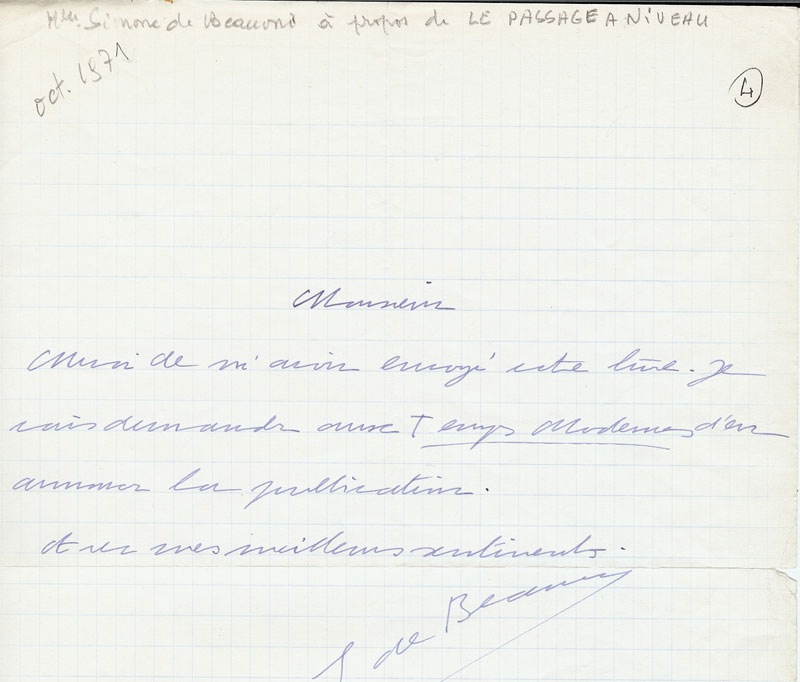 Mme Simone de Beauvoir à propos de LE PASSAGE A NiVEAU
oct. 1971
4
Monsieur
Merci de m'avoir envoyé votre livre. Je
vais demander aux Temps Modernes d'en
annoncer la publication.
Avec mes meilleurs sentiments.
S de Beauvoir